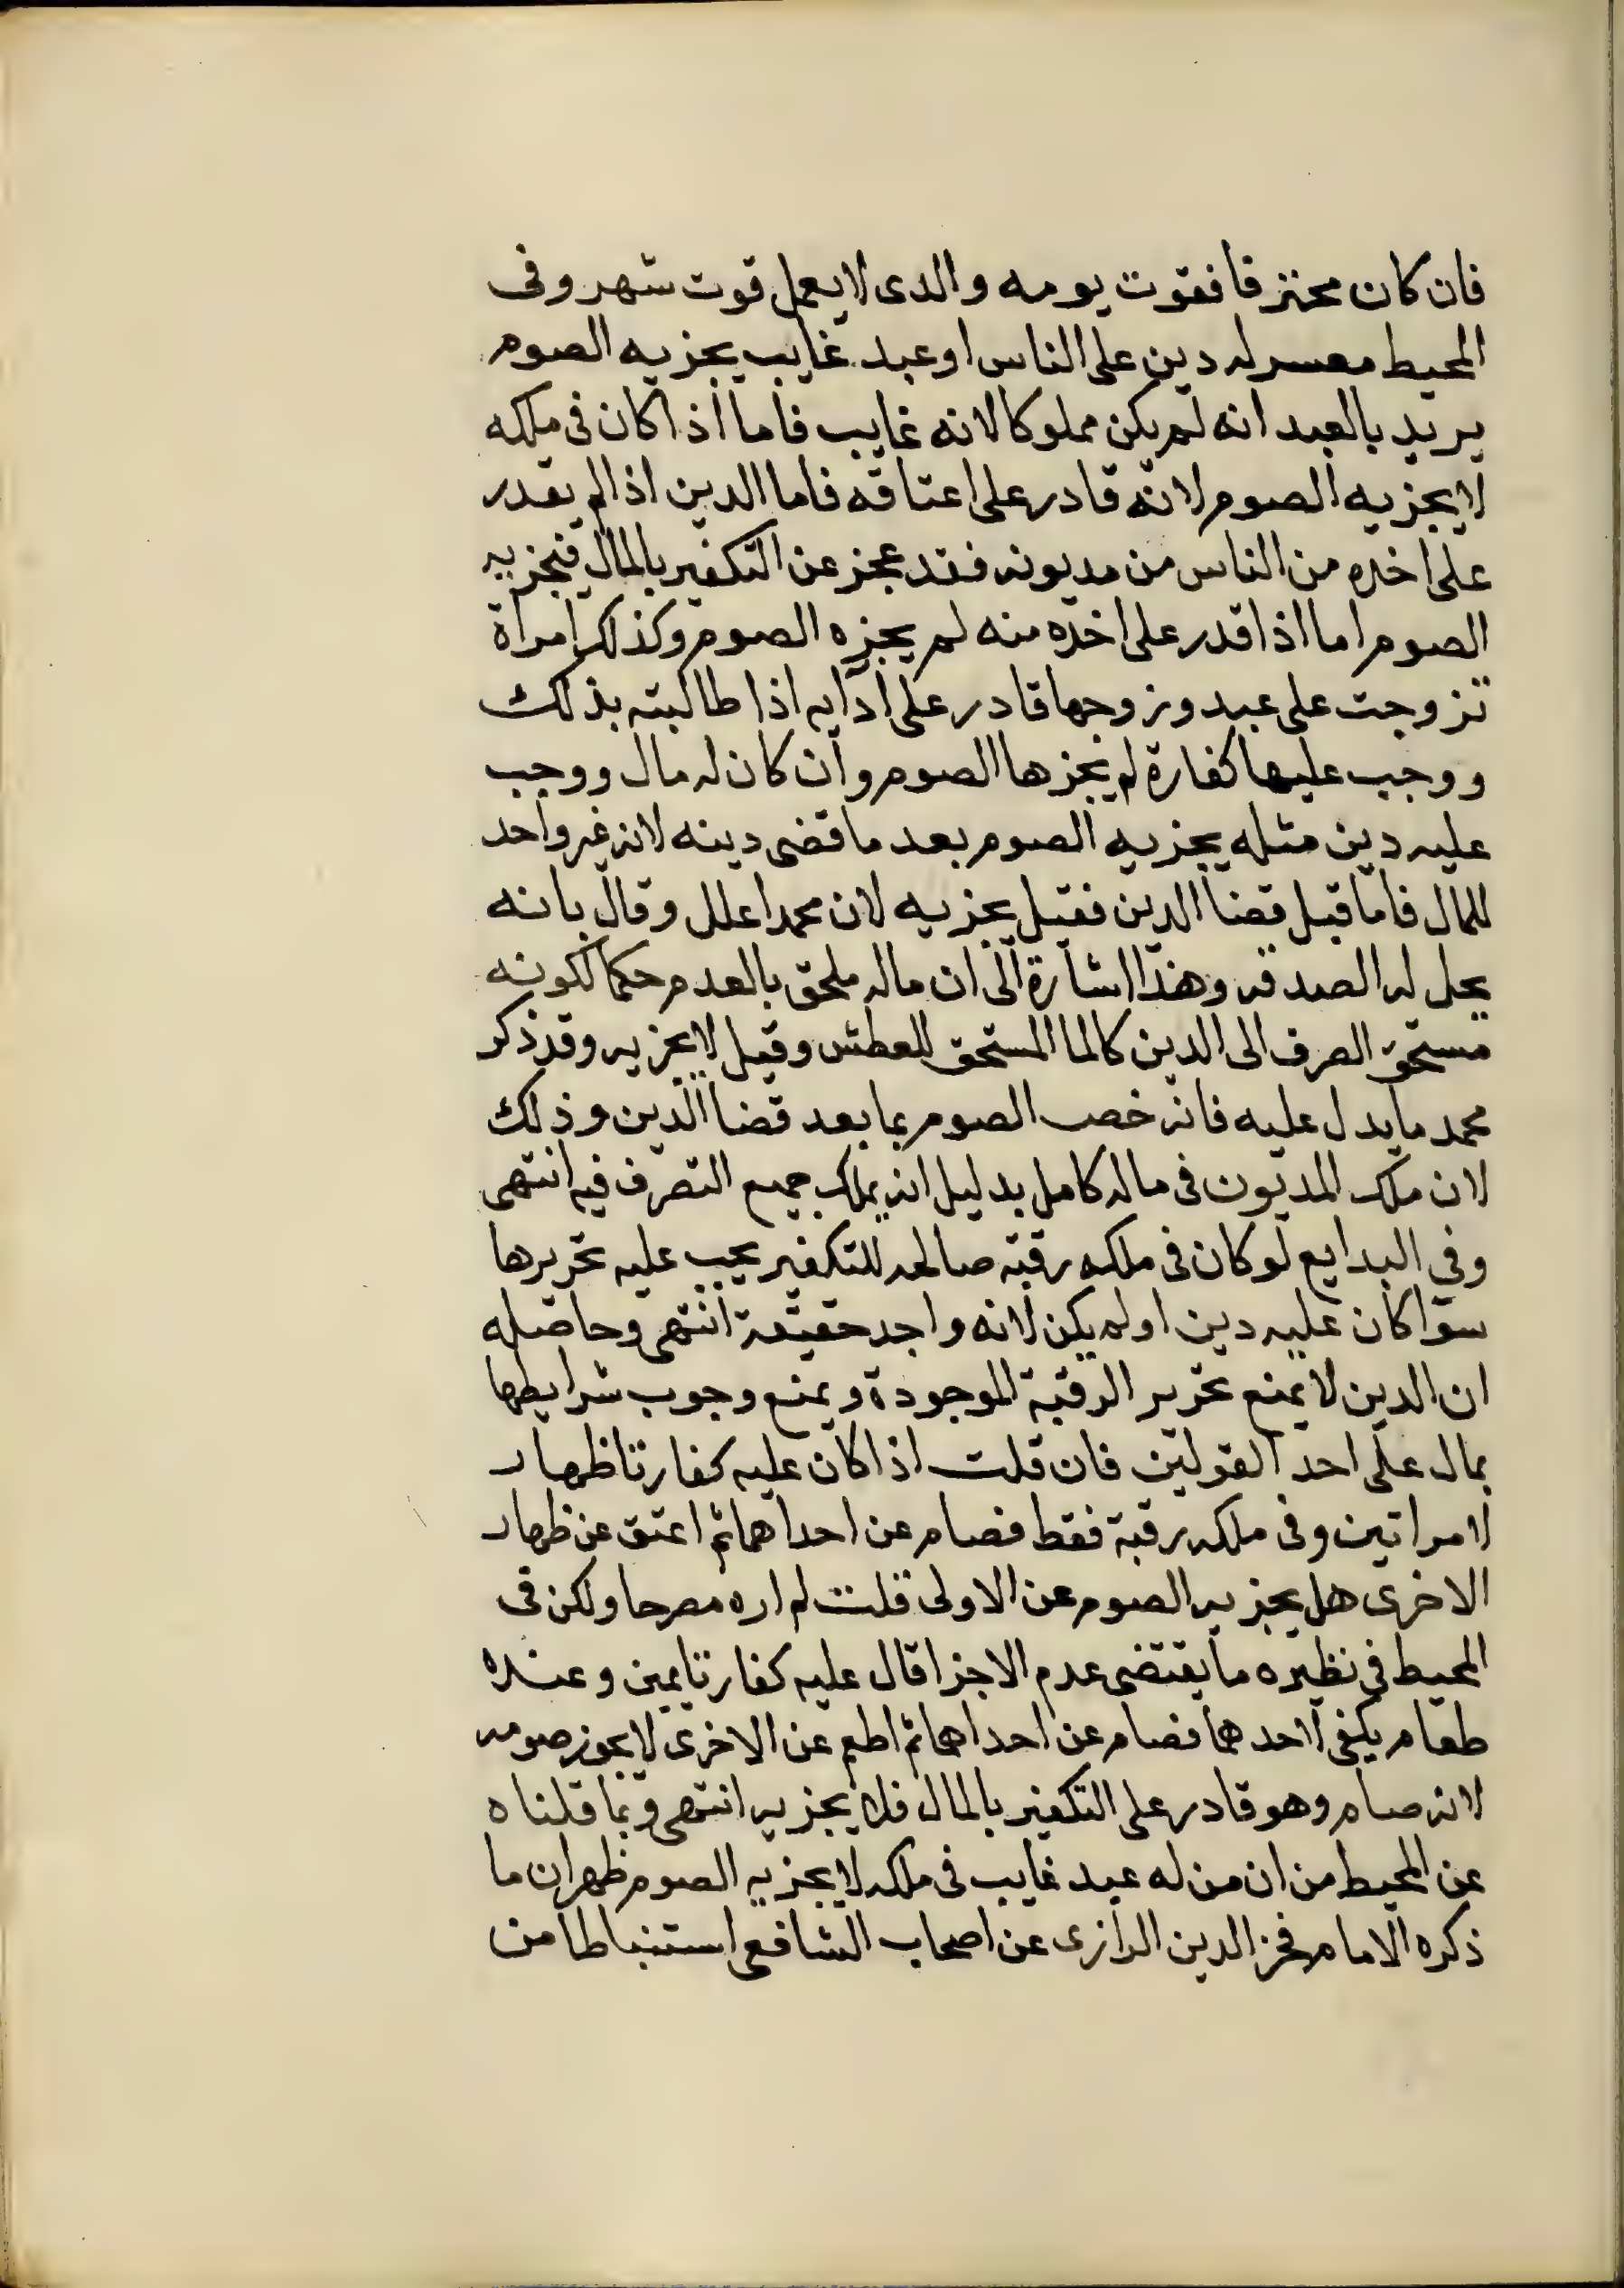 فان كان محترفا فقوت يومه والدى لا يعمل قوت شهر وفى
المحيط معسر له دين على الناس او عبد غايب يجزيه الصوم
يريد بالعبد انه لم يكن مملوكا لانه غايب فاما اذا كان فى ملكه
لا يجزيه الصوم لانه قادر على اعتاقه فاما الدين اذا لم يقدر
على اخده من الناس من مديونه فقد عجز عن التكفير بالمال فيجزيه
الصوم اما اذا قدر على اخده منه لم يجزه الصوم وكذلك امراة
تزوجت على عبد وزوجها قادر على ادايه اذا طالبته بذلك
ووجب عليها كفارة لم يجزها الصوم وان كان له مال ووجب
عليه دين مثله يجزيه الصوم بعد ما قضى دينه لانه غير واحد
للمال فاما قبل قضا الدين فقيل يجزيه لان محمدا علل وقال بانه
يحل له الصدقه وهذا اشارة الى ان ماله ملحق بالعدم حكما لكونه
مستحق الصرف الى الدين كالما المستحق للعطش وقيل لا يجزيه وقد ذكر
محمد ما يدل عليه فانه خص الصوم بما بعد قضا الدين وذلك
لان ملك المديون فى ماله كامل بدليل انه يملك جميع التصرف فيه انتهى
وفي البدايع لو كان فى ملكه رقبة صالحه للتكفير يجب عليه تحريرها
سوا كان عليه دين او لم يكن لانه واجد حقيقة انتهى وحاصله
ان الدين لا يمنع تحرير الرقبة الموجودة ويمنع وجوب شرايطها
بمال على احد القولين فان قلت اذا كان عليه كفارتا ظهار
لامراتين وفى ملكه رقبة فقط فصام عن احداهما ثم اعتق عن ظهار
الاخرى هل يجزيه الصوم عن الاولى قلت لم اره مصرحا ولكن فى
المحيط في نظيره ما يقتضى عدم الاجزا قال عليه كفارتا يمين وعنده
طعام يكفى لاحدهما فصام عن احداهما ثم اطعم عن الاخرى لا يجوز صومه
لانه صام وهو قادر على التكفير بالمال فلا يجزيه انتهى وبما قلناه
عن المحيط من ان من له عبد غايب فى ملكه لا يجزيه الصوم ظهر ان ما
ذكره الامام فخر الدين الرازى عن اصحاب الشافعى استنباطا من